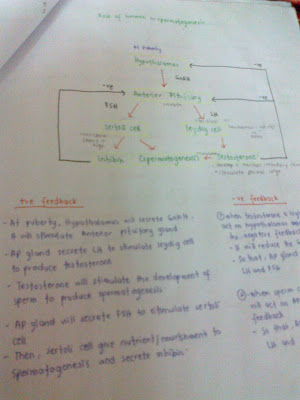 Role of hormone in spermatogenesis
at puberty
Hypothalamus
-ve
GnRH
-ve
-ve
Anterior Pituitary
FSH
LH
Sertoli cell
Leydig cell
Inhibin
Spermatogenesis
Testosterone
+ve feedback
- At puberty, Hypothalamus will secrete GnRH.
It will stimulate Anterior pituitary gland
- AP gland secrete LH to stimulate leydig cell
to produce testosterone
- Testosterone will stimulate the development of
sperm to produce spermatogenesis
- AP gland will secrete FSH to stimulate sertoli
cell
- Then, sertoli cell give nutrient/nourishment to
spermatogenesis and secrete inhibin
-ve feedback
① when testosterone
act on hypothalamus
by negative feedback
- It will reduce the
- So that, AP gland
LH and FSH
② - when sperm
will act on
feedback
- So that,
LH and